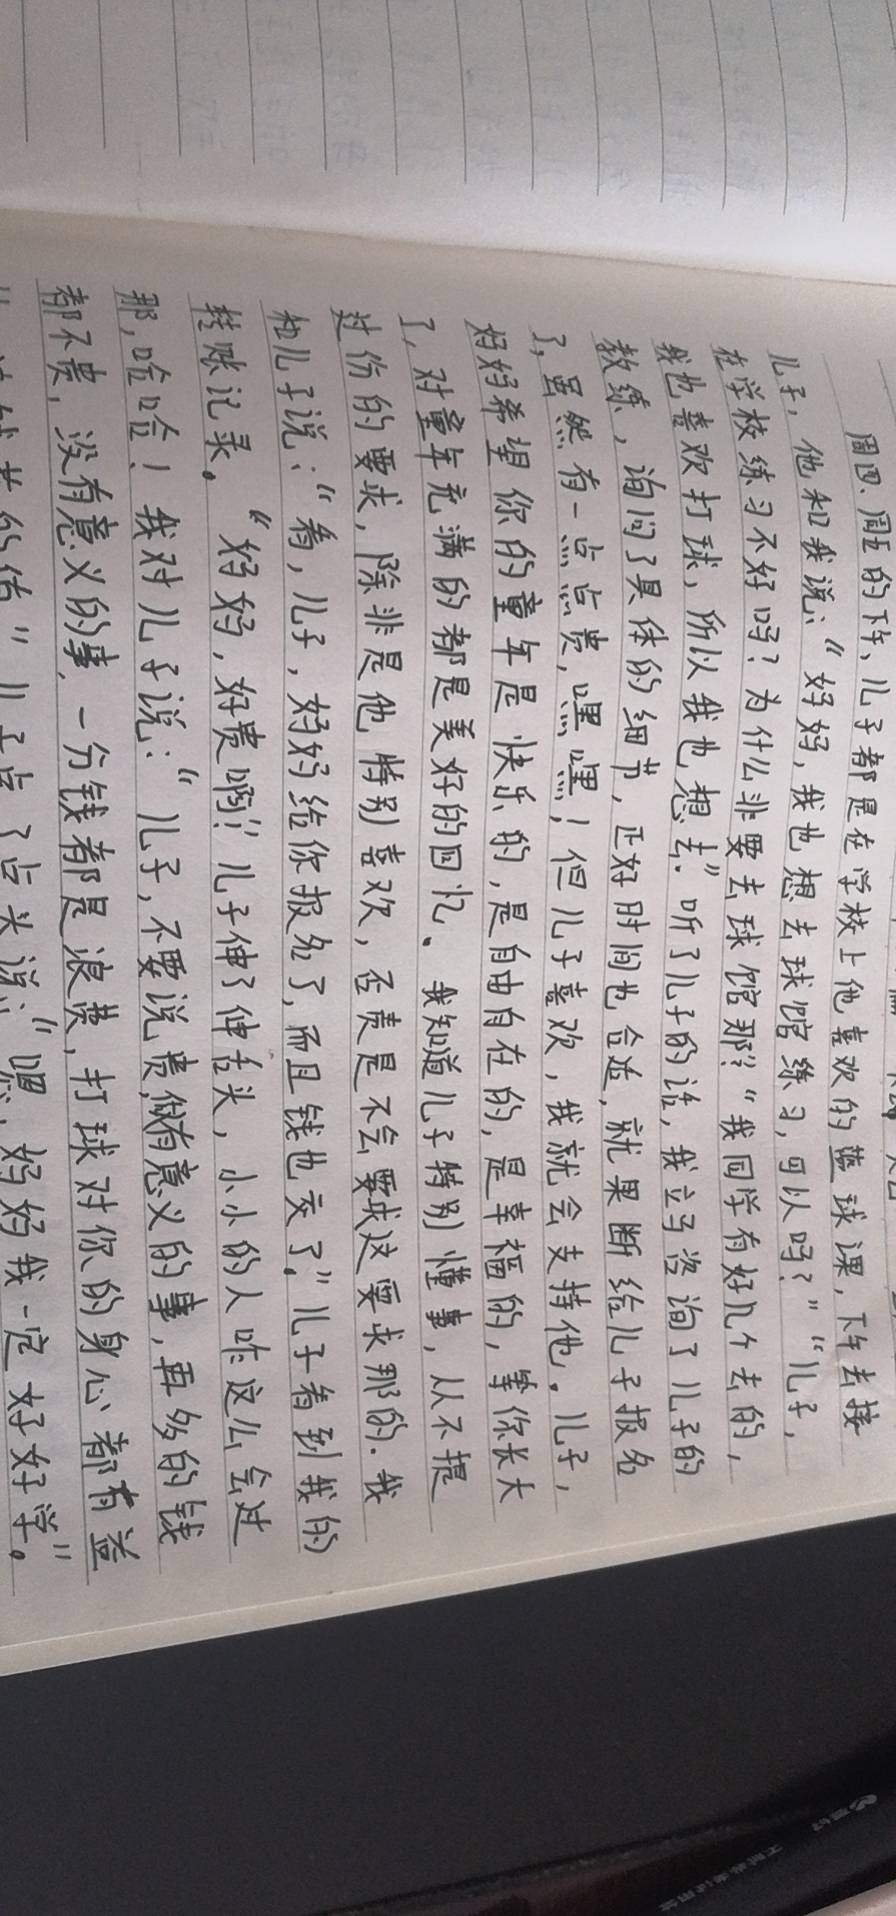 周四、周五的下午、儿子都是在学校上他喜欢的篮球课，下午去接
儿子，他和我说：“妈妈，我也想去球馆练习，可以吗？”“儿子，
在学校练习不好吗？为什么非要去球馆那？”“我同学有好几个去的，
我也喜欢打球，所以我也想去.”听了儿子的话，我立马咨询了儿子的
教练，询问了具体的细节，正好时间也合适，就果断给儿子报名
了，虽然有一点点贵，嘿嘿！但儿子喜欢，我就会支持他。儿子，
妈妈希望你的童年是快乐的，是自由自在的，是幸福的，等你长大
了，对童年充满的都是美好的回忆。我知道儿子特别懂事，从不提
过份的要求，除非是他特别喜欢，否责是不会要求这要求那的.我
和儿子说：“看，儿子，妈妈给你报名了，而且钱也交了。”儿子看到我的
转账记录。“妈妈，好贵啊！”儿子伸了伸舌头，小小的人咋这么会过
那，哈哈！我对儿子说：“儿子，不要说贵，做有意义的事，再多的钱
都不贵，没有意义的事，一分钱都是浪费，打球对你的身心都有益
儿子点了点头说：“嗯，妈妈我一定好好学。”